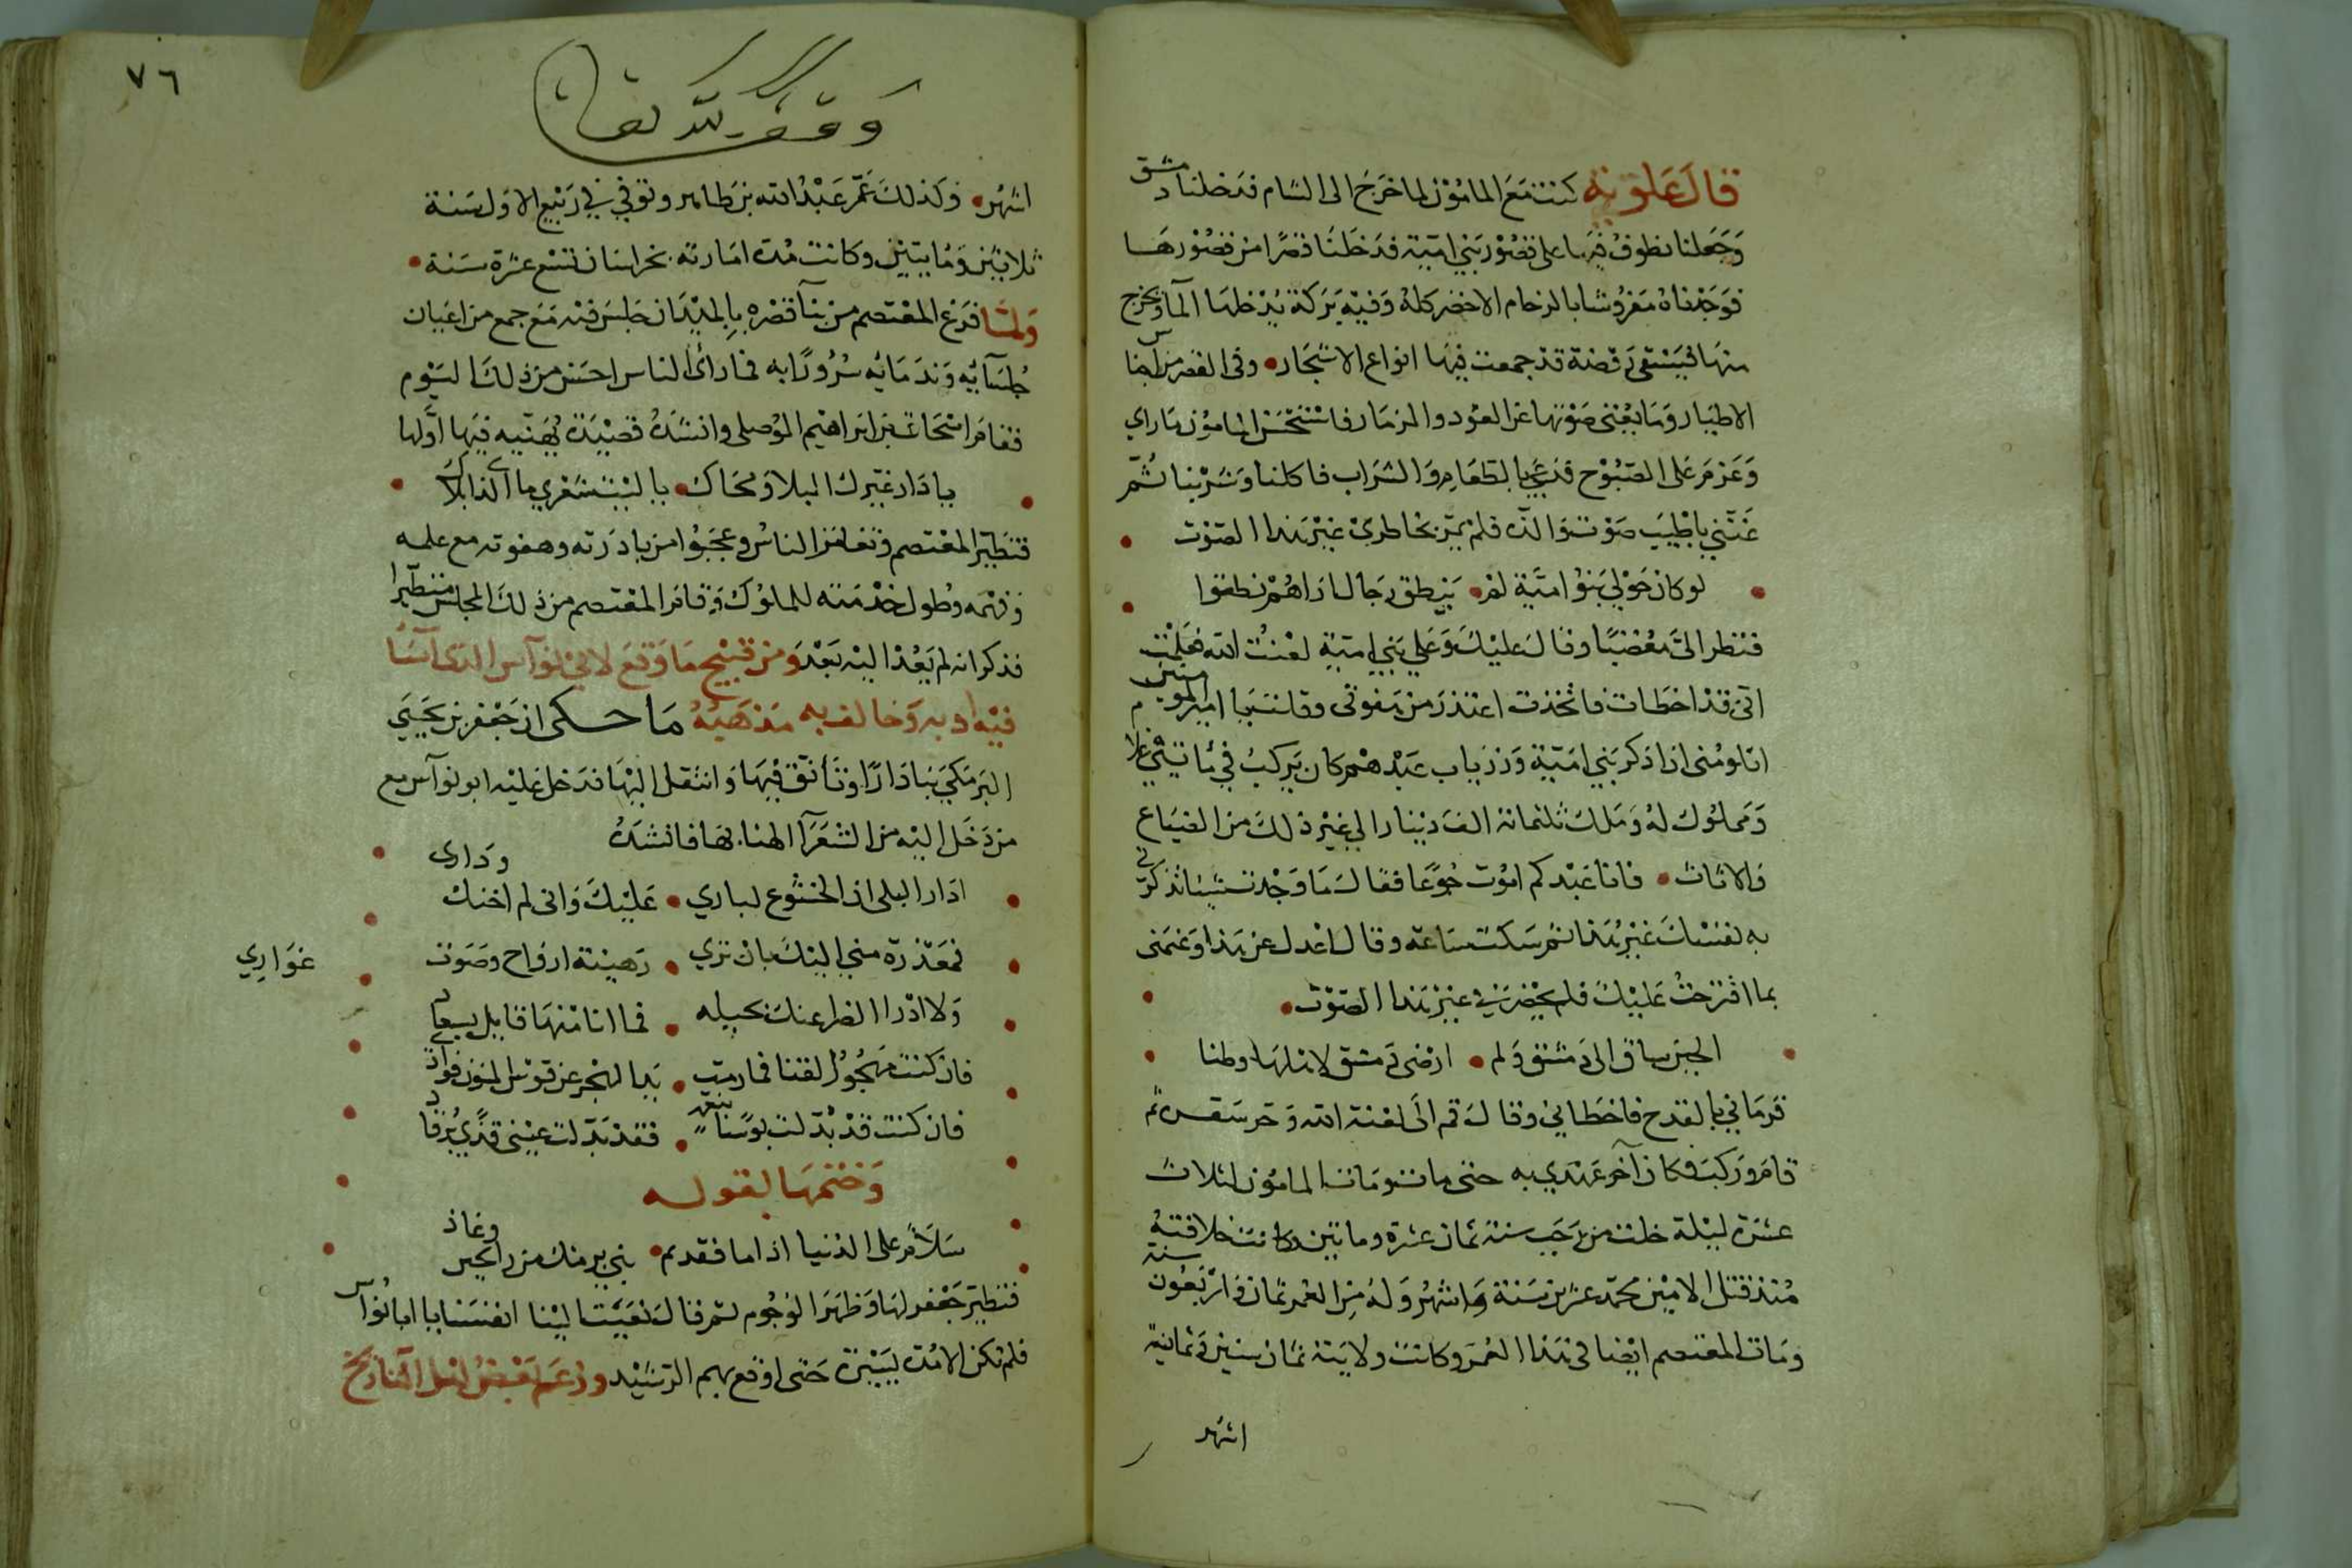 قال علويه كنت مع المامون لما خرج الى الشام فدخلنا دمشق
وجعلنا نطوف فيها على قصور بني امية فدخلنا قصرا من قصورها
فوجدناه مفروشا بالرخام الاخضر كله وفيه بركة يدخلها المآ ويخرج
منها فيسقى قد جمعت فيها انواع الاشجار وفى القصر من اجناس
الاطيار وما يغنى صوتها عن العود والمزمار فاستحسن المامون ما راي
وعزم على الصبوح فدعي بالطعام والشراب فاكلنا وشربنا ثم
غنني باطيب صوت والذه فلم يمر بخاطري غير هذا الصوت
لو كان حولي بنو امية لم ينطق رجال اراهم نطقوا
فنظر الى مغضبا وقال عليك وعلي بني امية لعنت الله فعلمت
اني قد اخطات فاخذت اعتذر من هفوتى وقلت يا امير المومنين
اتلومنى اذا ذكر بني امية وزرياب عبدهم كان يركب في مائتي غلام
ومملوك له وملك ثلثمائة الف دينار الي غير ذلك من الضياع
والاثاث وانا عبدكم اموت جوعا فقال ما وجدت شيئا تذكرني
به نفسك غير هذا ثم سكت ساعة وقال اعدل عن هذا وغنى
بما اقترحت عليك فلم يحضرني غير هذا الصوت
الحين ساق الى دمشق ولم ارضى دمشق لاهلها وطنا
فرماني بالقدح فاخطاني وقال قم الى لعنة الله وحر سقر ثم
قام وركب وكان آخر عهدي به حتى مات ومات المامون لثلاث
عشرة ليلة خلت من رجب سنة ثمان عشرة وماتين وكانت خلافته
منذ قتل الامين محمد عشرين سنة واشهر وله من العمر ثمان واربعون سنة
ومات المعتصم ايضا فى هذا العمر وكانت ولايته ثمان سنين وثمانية
اشهر
٧٦
وقف لله تعالى
اشهر وكذلك عمر عبد الله بن طاهر وتوفي في ربيع الاول سنة
ثلاثين ومايتين وكانت مدة امارته بخراسان تسع عشرة سنة
ولما فرغ المعتصم من بنآ قصره بالميدان جلس فيه مع جمع من اعيان
جلسآيه وندمايه سرورا به فما رائ الناس احسن من ذلك اليوم
فقام اسحاق بن ابراهيم الموصلى وانشده قصيدة يهنيه فيها اولها
يا دار غيرك البلا ومحاك يا ليت شعري ما الذى ابلاك
فتطير المعتصم وتغامز الناس وعجبوا من بادرته وهفوته مع علمه
وفهمه وطول خدمته للملوك وقام المعتصم من ذلك المجلس متطيرا
فذكر انه لم يعد اليه بعد ومن قبيح ما وقع لابي نوآس الذى آسا
فيه ادبه وخالف به مذهبه ما حكى ان جعفر بن يحيي
البرمكي بنا دارا وتانق فيها وانتقل اليها فدخل عليه ابو نوآس مع
من دخل اليه من الشعرآ الهنا بها فانشده
ادار البلى ان الخشوع لباري عليك وانى لم اخنك ودادى
فمعذرة مني اليك بان تري رهينة ارواح وصوت غواري
ولا ادرا الضر عنك بحيله فما انا منها قابل بسعاد
فان كنت مهجور الفنا فما رمت يد الهجر عن قوس المنون فواد
فان كنت قد بدلت بوسا بنعمه فقد بدلت عيني قذي برقاد
وختمها بقوله
سلام على الدنيا اذا ما فقدتم بني برمك من رايحين وغاذ
فتطير جعفر لها وظهر الوجوم ثم قال نعيت الينا انفسنا يا ابا نوآس
فلم تكن الا مدة يسيرة حتى اوقع بهم الرشيد وزعم بعض اهل التاريخ